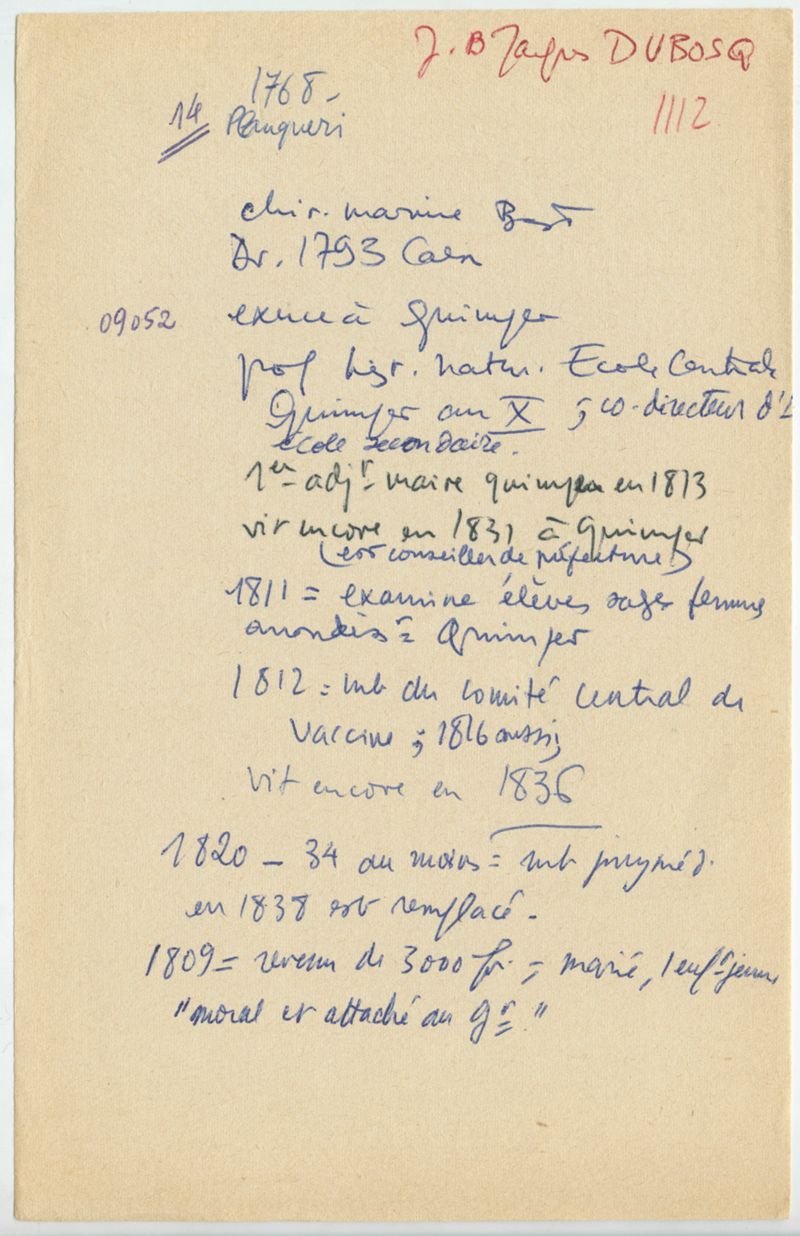 J. B Jacques DUBOSQ
1112
1768 -
14 Planqueri
chir. marine Brest
Dr. 1793 Caen
09052 exerce à Quimper
prof hist. natur. Ecole Centrale
Quimper an X ; co-directeur d'1
école secondaire.
1er adjt maire quimper en 1813
vit encore en 1831 à Quimper
(est conseiller de préfecture)
1811 = examine élèves sages femmes
arrondist Quimper
1812 = mb du comité central de
vaccine ; 1816 aussi
vit encore en 1836
1820 - 34 au moins = mb jury méd.
en 1838 est remplacé.
1809 = revenu de 3000 fr. ; marié, 1 enft jeune
"moral et attaché au Gt"